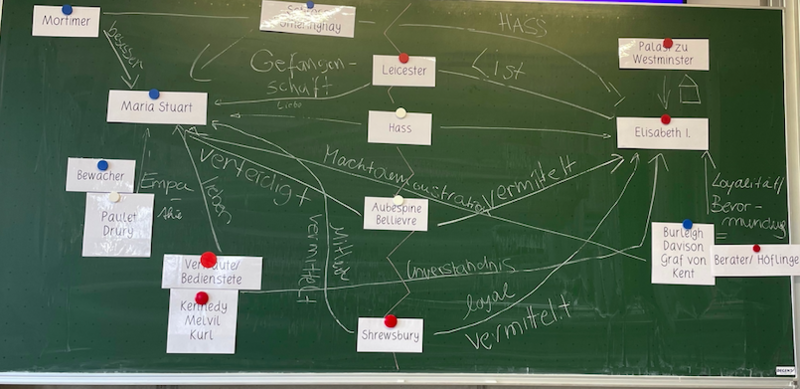 Mortimer
Schloss
Fotheringhay
HASS
besser
Gefangen-
schaft
Leicester
List
Palast zu
Westminster
Liebe
Maria Stuart
Hass
Elisabeth I.
verteidigt
Machtdemonstration
vermittelt
Bewacher
Empa-
thie
Paulet
Drury
lieben
Aubespine
Bellievre
Loyalität/
Bevor-
mundung
Burleigh
Davison
Graf von
Kent
Berater/ Höflinge
Vertraute/
Bedienstete
vermittelt
Mitleid
Unverständnis
Kennedy
Melvil
Kurl
loyal
Shrewsbury
vermittelt